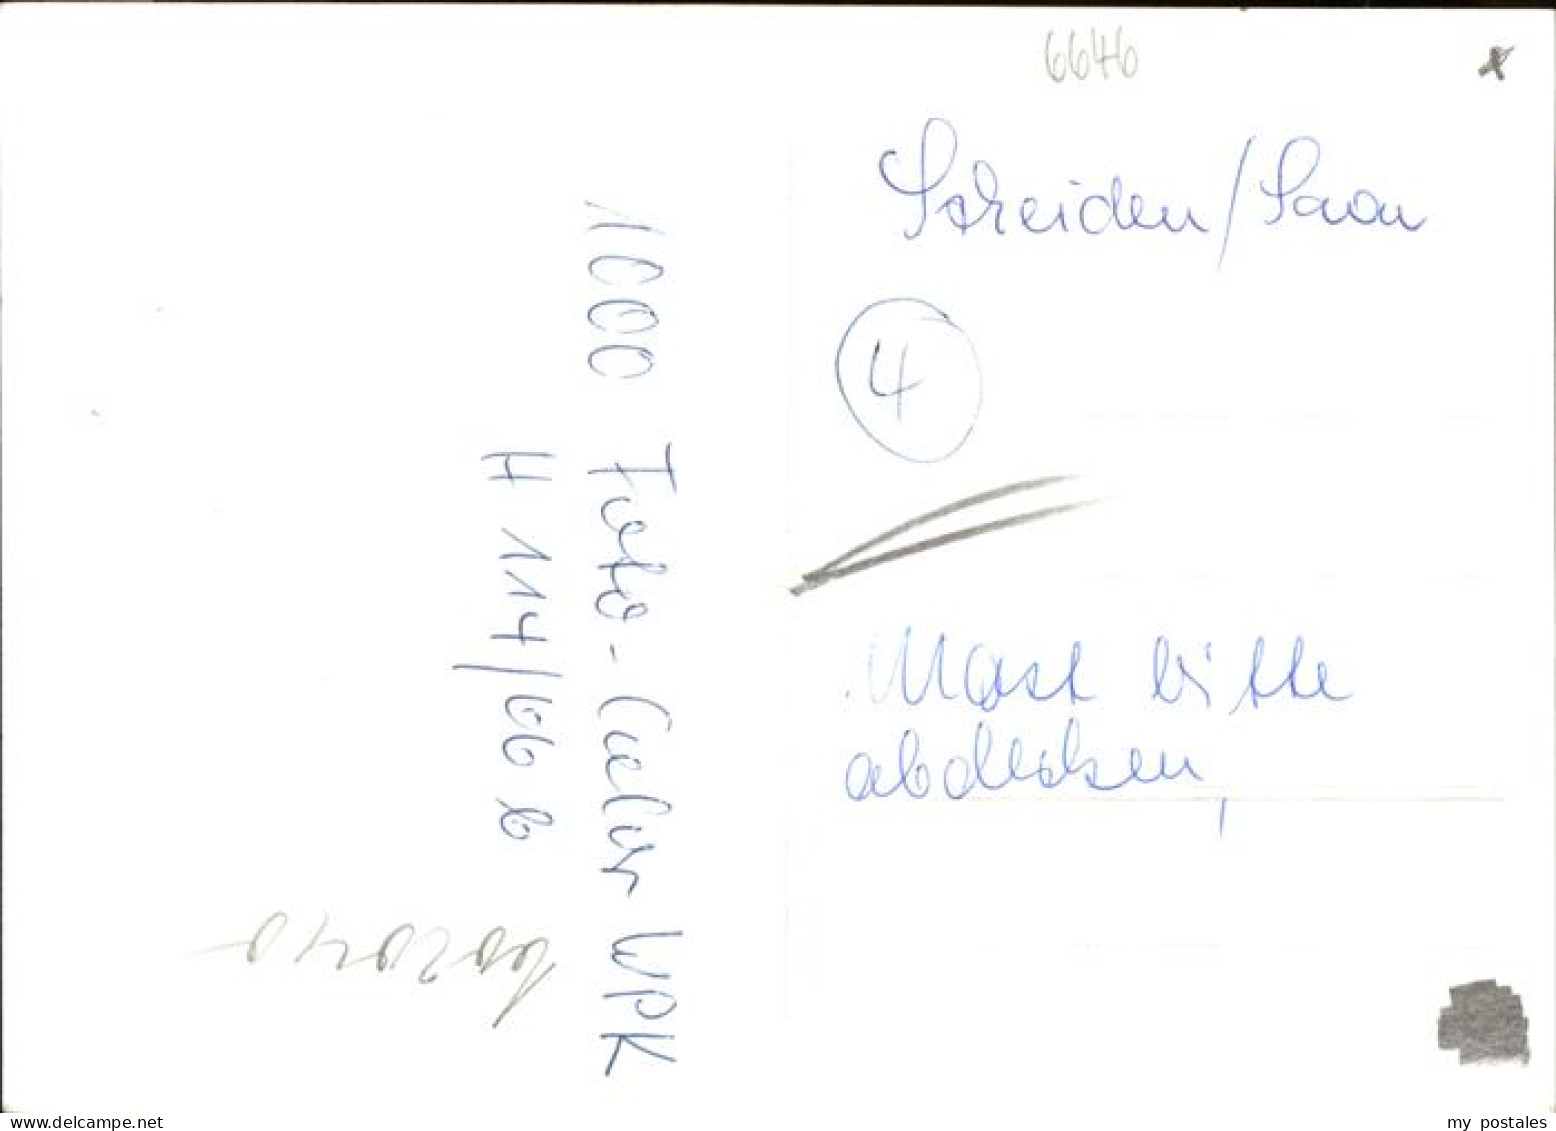 6646
Scheiden/Saar
4
Mast bitte
abdecken,
1000 Foto-Color WPK
H 114/66 b
delcampe.net
my_postales